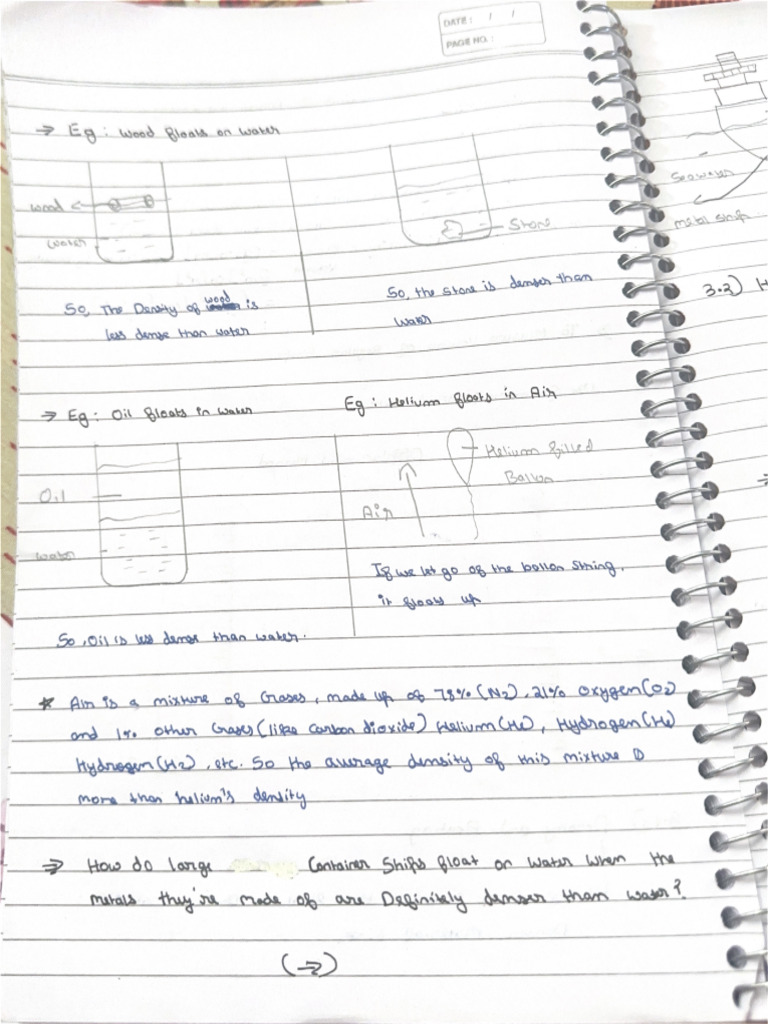 DATE: / /
PAGE NO.:
→ Eg: Wood floats on water
wood
water
Stone
So, The Density of wood is
less dense than water
So, the stone is denser than
water
→ Eg: Oil floats in water
Eg: Helium floats in Air
Oil
water
Air
Helium filled
Ballon
If we let go of the ballon string,
it floats up
So, Oil is less dense than water.
* Air is a mixture of Gases, made up of 78% (N2), 21% Oxygen(O2)
and 1% other Gases (like carbon dioxide) Helium(He), Hydrogen(He)
Hydrogen(H2), etc. So the average density of this mixture
more than helium's density
⇒ How do large Container Ships float on water when the
metals they're made of are Definitely denser than water?
(→)
Sea water
metal ship
3.2) H